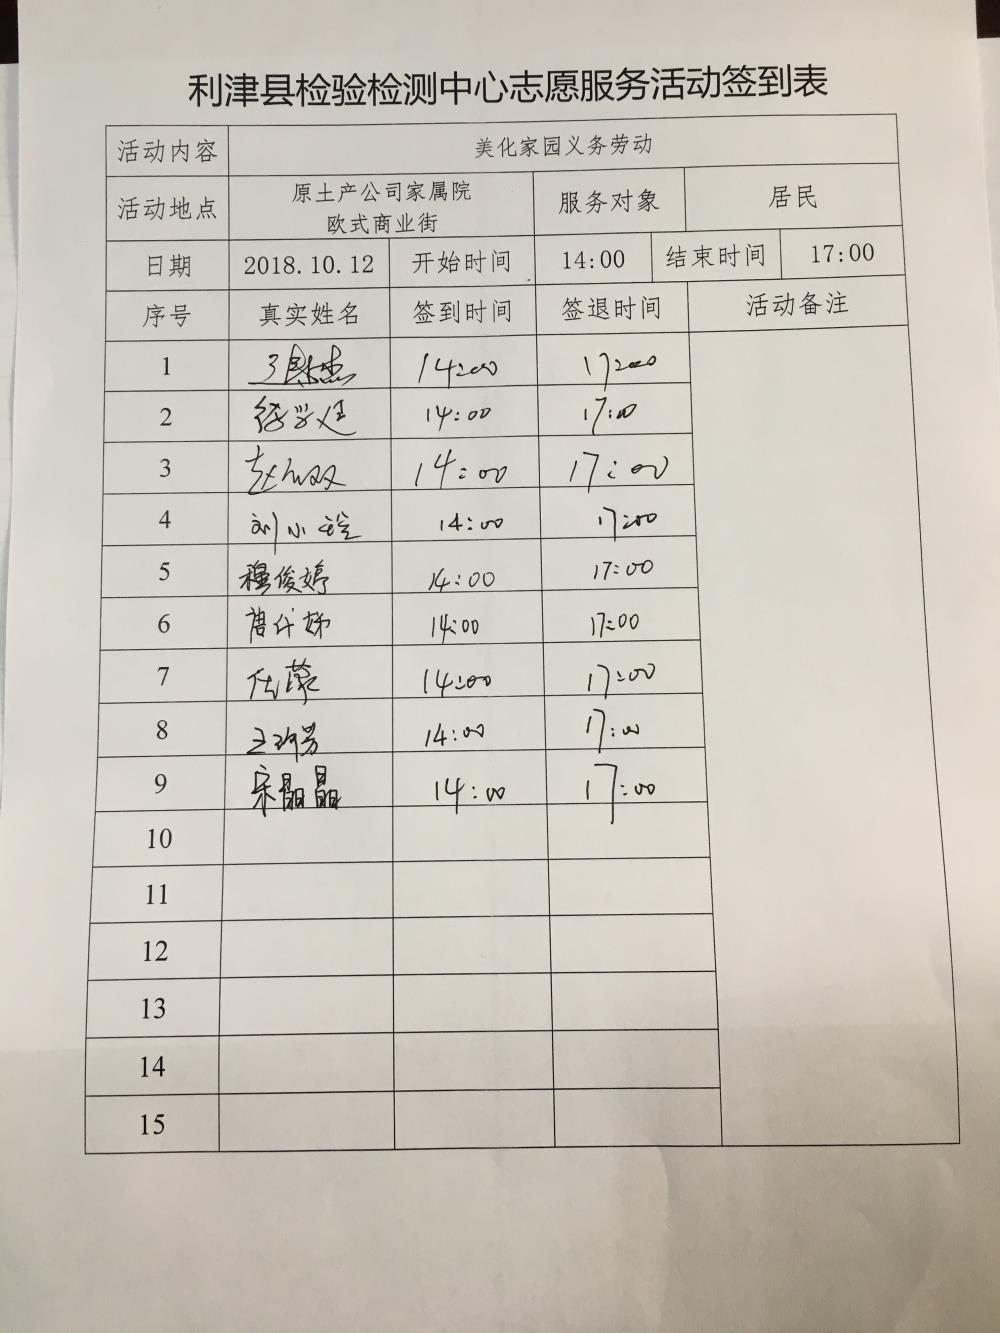 利津县检验检测中心志愿服务活动签到表
活动内容 美化家园义务劳动
活动地点 原土产公司家属院 欧式商业街 服务对象 居民
日期 2018.10.12 开始时间 14:00 结束时间 17:00
序号 真实姓名 签到时间 签退时间 活动备注
1 14:00 17:00
2 14:00 17:00
3 14:00 17:00
4 刘小 14:00 17:00
5 穆俊婷 14:00 17:00
6 14:00 17:00
7 14:00 17:00
8 王 芳 14:00 17:00
9 宋晶晶 14:00 17:00
10
11
12
13
14
15